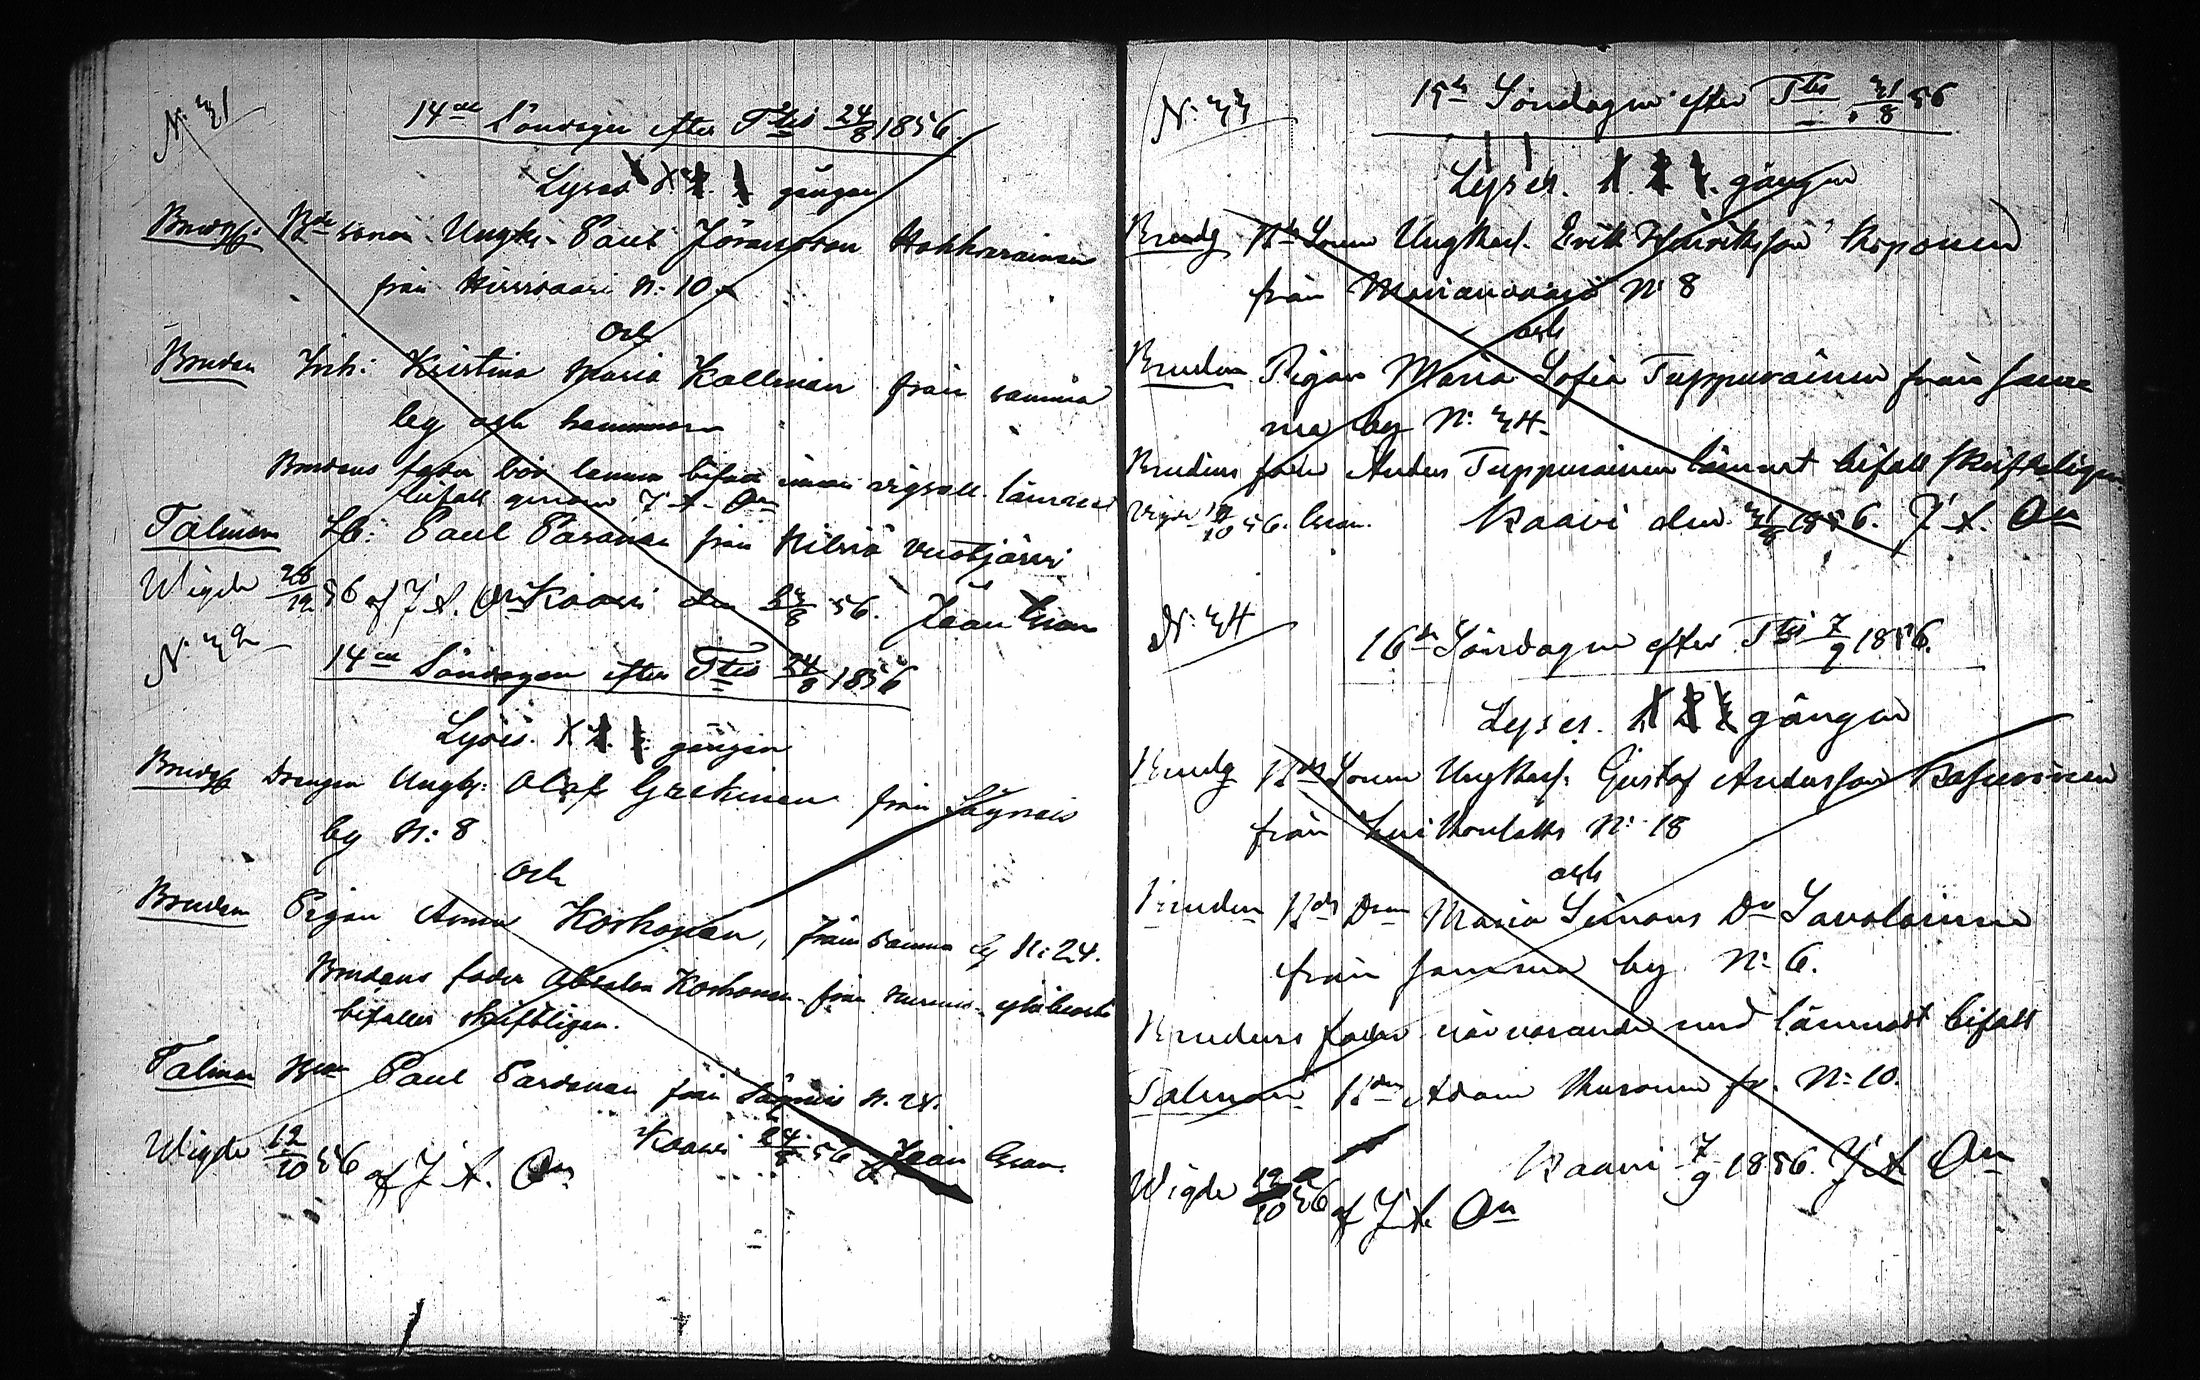 N: 31
14de Söndagen efter Ttis 24/8 1856.
Lyses 1. 2. 3. gången
Brudg: Bde sonen Ungk. Paul Jöransson Hakkarainen
från Hirvivaari N: 10
och
Bruden Inh: Kristina Maria Kallman från samma
by och hamman
Brudens fader bör lemna bifall innan vigsell. lämnad
bifall genom J. A. On
Talman Lb: Paul Pasanen från Nilsiä Vuotjärvi
Wigde 28/12 56 af J. A. On Kaavi den 23/8 56. Jean Cran
N: 32
14de Söndagen efter Ttis 24/8 1856
Lyses 1. 2. 3. gången
Brudg Drengen Ungk: Olof Grekinen från Säyneis
by N: 8
och
Bruden Pigan Anna Korhonen, från samma by N: 24.
Brudens fader Absalon Korhonen från Nurmis
bifaller skriftligen.
Talman Bon Paul Pardanen från Säyneis N. 24.
Wigde 12/10 56 af J. A. On Kaavi 24/8 56 Jean Cran
N: 33
15de Söndagen efter Ttis 31/8 56
Lyses. 1. 2. 3. gången
Brudg Bde Sonen Ungkarl. Erik Henriksson Koponen
från Marianvaara N: 8
och
Bruden Pigan Maria Sofia Tuppurainen från sam
ma by N: 34.
Brudens fader Anders Tuppurainen lämnat bifall skriftligen
Vigde 12/10 56. Cran. Kaavi den 31/8 1856. J. A. On
N: 34
16de Söndagen efter Ttis 7/9 1856.
Lyses. 1 2 3 gången
Brudg Bds Sonen Ungkarl: Gustaf Andersson Kasurinen
från Luikonlaks N: 18
och
Bruden Bds Dren Maria Simons Dr Savolainen
från samma by N: 6.
Brudens fader närvarande med lämnadt bifall
Talman Bden Adam Kuronen fr. N: 10.
Kaavi 7/9 1856. J A On
Wigde 12/10 56 af J. A. On